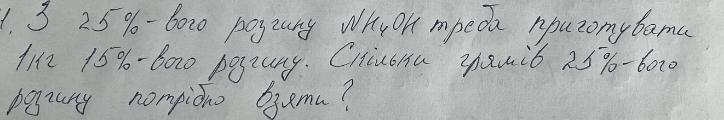 1. З 25%-вого розчину NH₄OH треба приготувати
1кг 15%-вого розчину. Скільки грамів 25%-вого
розчину потрібно взяти?